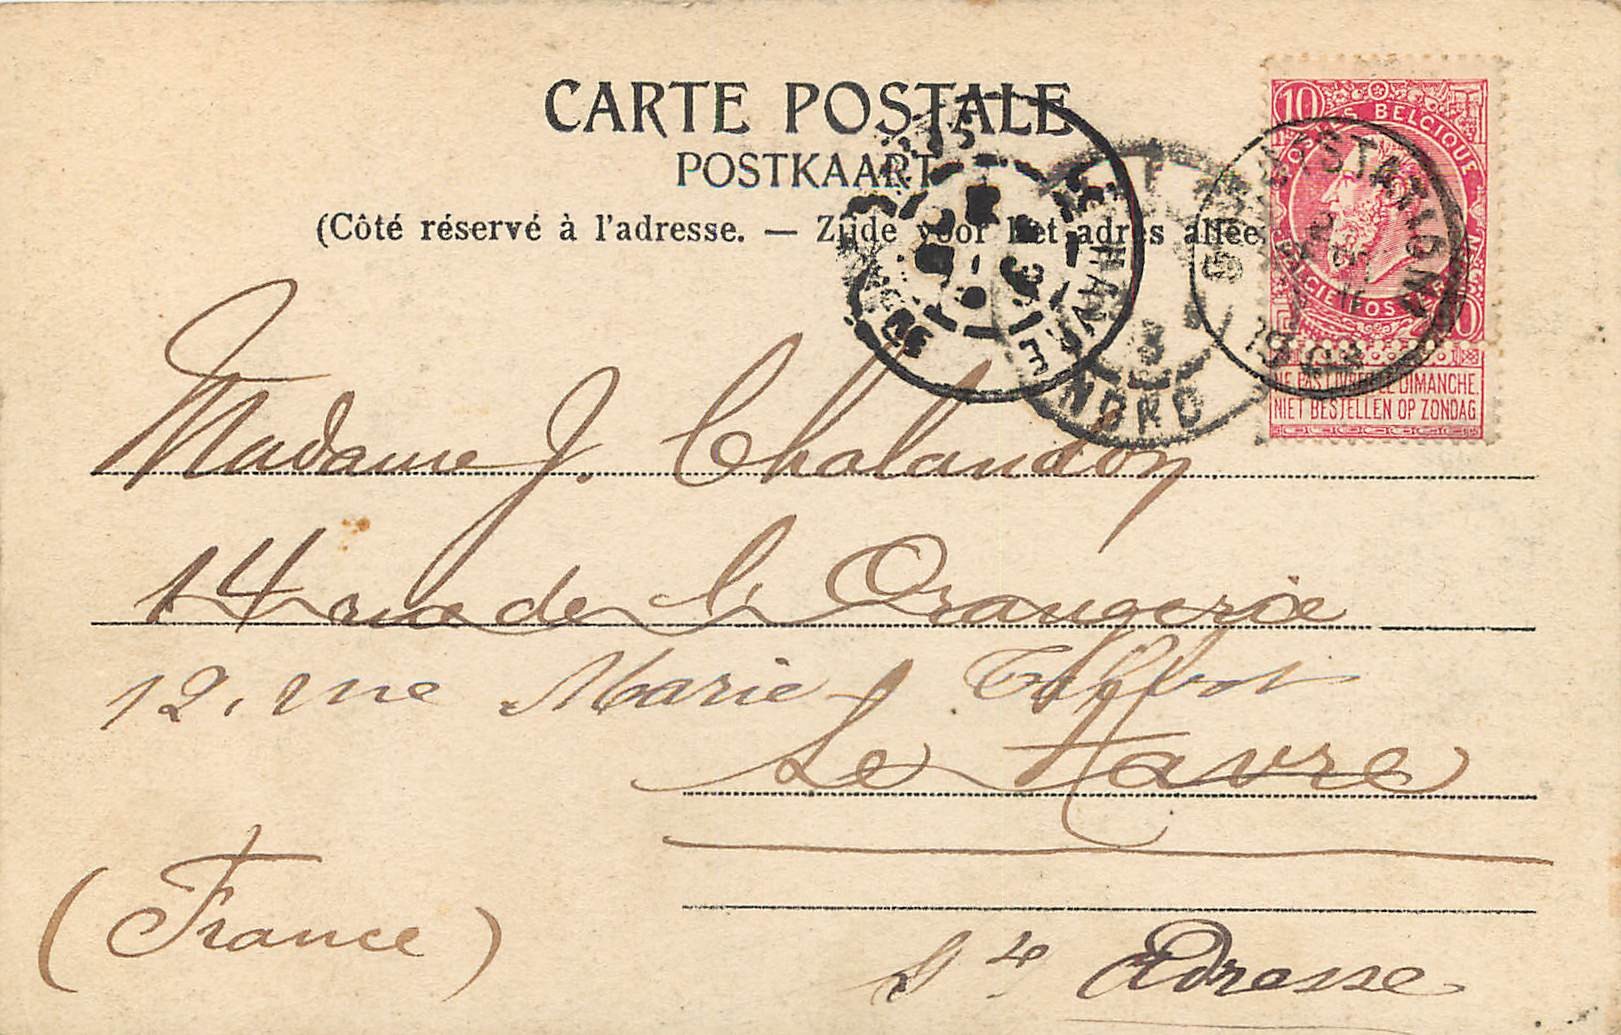 CARTE POSTALE
POSTKAART
(Côté réservé à l'adresse. — Zijde voor het adres alleen
10 POSTES BELGIQUE 10
NE PAS LIVRER LE DIMANCHE
NIET BESTELLEN OP ZONDAG
LE HAVRE
NORD
1904
Madame J. Chalandon
14 rue de l'Orangerie
12, rue Marie
Le Havre
(France)
Adresse